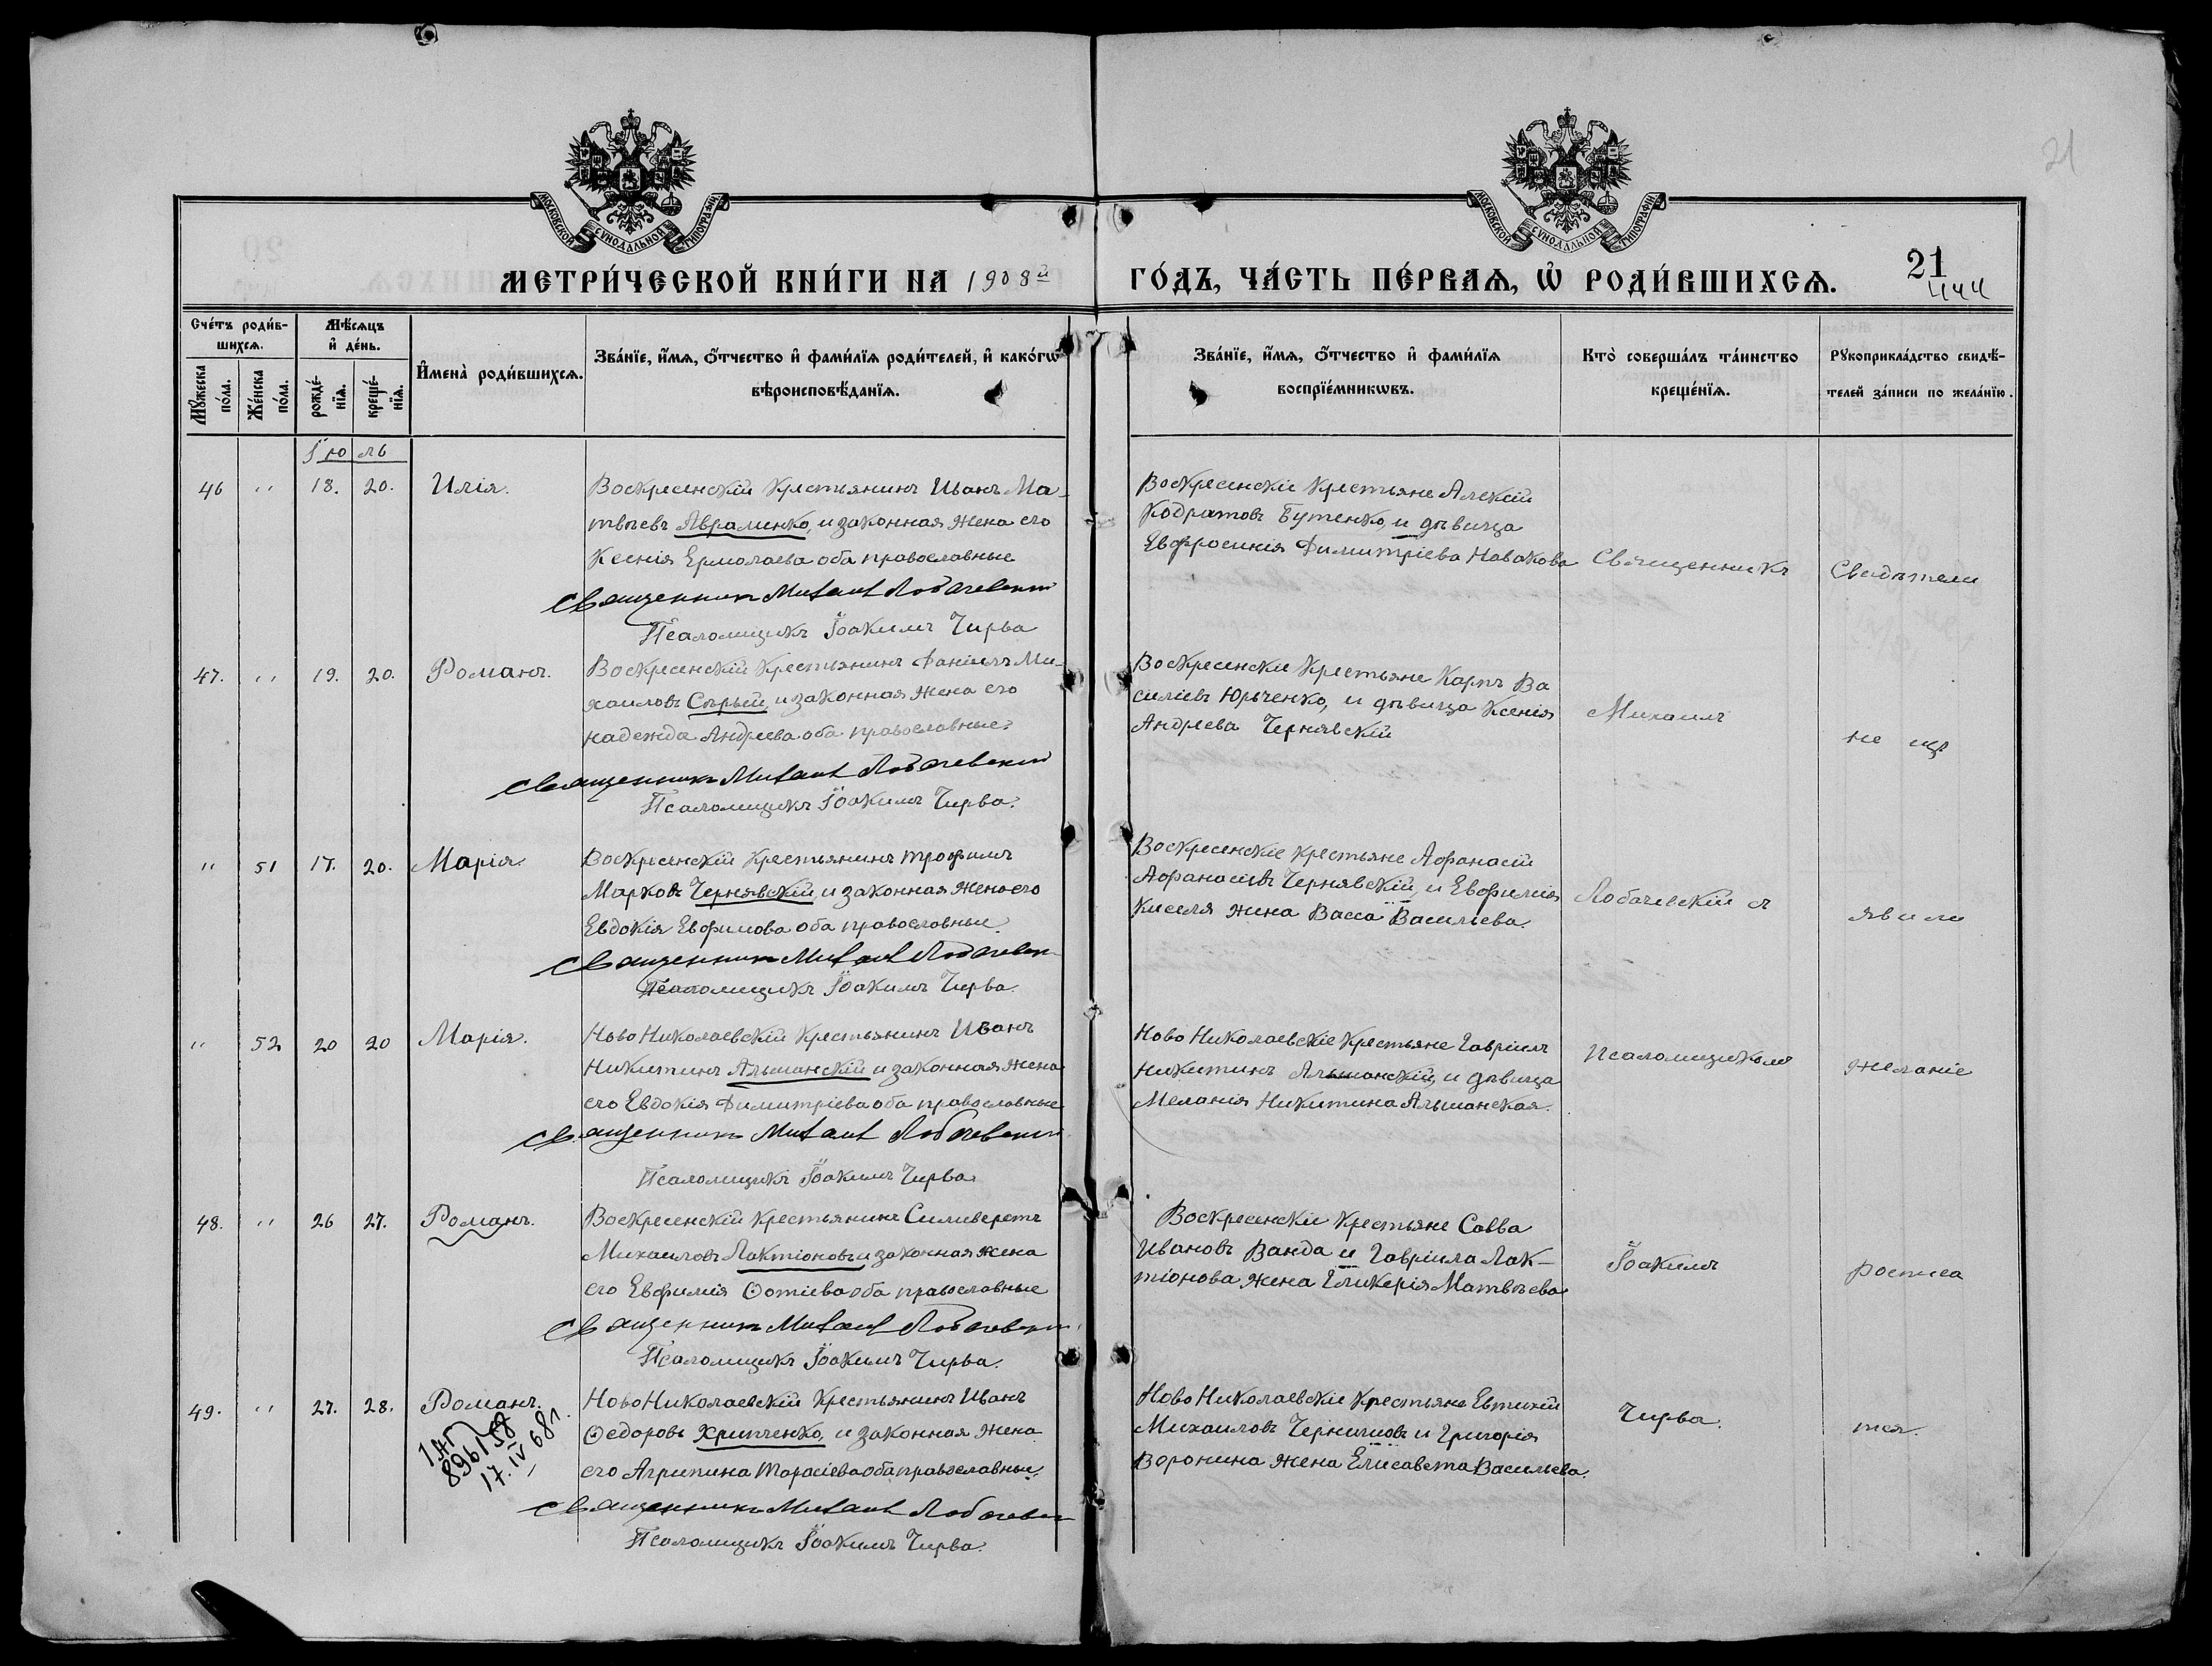 21
МОСКОВСКОЙ СѴНОДАЛЬНОЙ ТИПОГРАФІИ
МОСКОВСКОЙ СѴНОДАЛЬНОЙ ТИПОГРАФІИ
МЕТРИ́ЧЕСКОЙ КНИ́ГИ НА 1908й
ГО́ДЪ, ЧА́СТЬ ПЕ́РВАѦ, Ѡ҆ РОДИ́ВШИХСѦ.
21
444
Сче́тъ роди́в-
шихсѧ.
Мѣ́сѧцъ
и҆ де́нь.
Мꙋ́жеска
по́ла.
Же́нска
по́ла.
рожде́-
нїѧ.
креще́-
нїѧ.
И҆мена̀ роди́вшихсѧ.
Зва́нїе, и҆́мѧ, ѻ҆́тчество и҆ фами́лїѧ роди́телей, и҆ како́гѡ
вѣроисповѣ́данїѧ.
Зва́нїе, и҆́мѧ, ѻ҆́тчество и҆ фами́лїѧ
воспрїе́мникѡвъ.
Кто̀ соверша́лъ та́инство
креще́нїѧ.
Рꙋкоприкла́дство свидѣ́-
телей за́писи по жела́нїю.
Іюль
46 " 18. 20. Илія.
Воскресенскій Крестьянинъ Иванъ Ма-
твѣевъ Авраменко, и законная жена его
Ксенія Ермолаева оба православные
Священникъ Михаилъ Лобачевскій
Псаломщикъ Іоакимъ Чирва
Воскресенскіе Крестьяне Алексій
Кодратовъ Бутенко, и дѣвица
Евфросинія Димитріева Новакова
Священникъ
Свидѣтели
47. " 19. 20. Романъ.
Воскресенскій Крестьянинъ Даніилъ Ми-
хаиловъ Сѣрый, и законная жена его
надежда Андреева оба православные.
Священникъ Михаилъ Лобачевскій
Псаломщикъ Іоакимъ Чирва.
Воскресенскіе Крестьяне Карпъ Ва
силіевъ Юрьченко, и дѣвица Ксенія
Андреева Чернявскій
Михаилъ
не изъ
" 51 17. 20. Марія.
Воскресенскій Крестьянинъ Трофимъ
Марковъ Чернявскій, и законная жена его
Евдокія Евфимова оба православные.
Священникъ Михаилъ Лобачевск
Псаломщикъ Іоакимъ Чирва.
Воскресенскіе крестьяне Афанасій
Афанасіевъ Чернявскій, и Евфимія
Киселя жена Васса Василіева.
Лобачевскій съ
явили
" 52 20 20 Марія.
Ново Николаевскій Крестьянинъ Иванъ
Никитинъ Альшанскій и законная жена
его Евдокія Димитріева оба православные
Священникъ Михаилъ Лобачевскій
Псаломщикъ Іоакимъ Чирва
Ново Николаевскіе Крестьяне Гавріилъ
Никитинъ Альшанскій, и дѣвица
Меланія Никитина Альшанская.
Псаломщикомъ
желаніе
48. " 26 27. Романъ.
Воскресенскій Крестьянинъ Силиверстъ
Михаиловъ Лактіоновъ и законная жена
его Евфимія Ѳотіева оба православные
Священникъ Михаилъ Лобачевск
Псаломщикъ Іоакимъ Чирва.
Воскресенскіе Крестьяне Савва
Ивановъ Ванда и Гавріила Лак-
тіонова жена Гликерія Матвѣева
Іоакимъ
росписа
49. " 27. 28. Романъ.
896158
17.IV 68г.
Ново Николаевскій Крестьянинъ Иванъ
Ѳедоровъ Хрипченко, и законная жена
его Агрипина Тарасіева оба православные.
Священникъ Михаилъ Лобачев
Псаломщикъ Іоакимъ Чирва.
Ново Николаевскіе Крестьяне Евтихій
Михаиловъ Чернышовъ и Григорія
Воронина жена Елисавета Васильева.
Чирва.
тся.